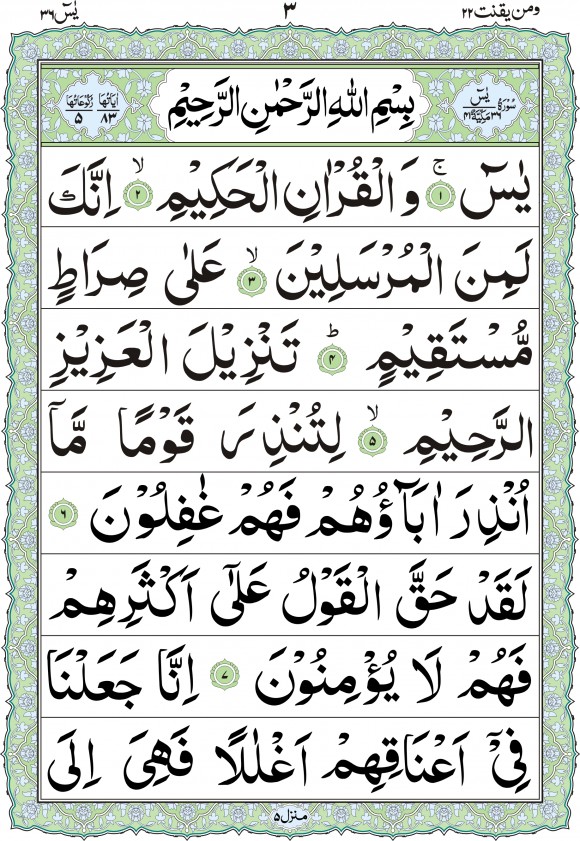 ومن يقنت ٢٢
٣
يٰسٓ ٣٦
سُوْرَةُ يٰسٓ
٣٦ مَكِّيَّةٌ ٤١
بِسْمِ اللهِ الرَّحْمٰنِ الرَّحِيْمِ
اٰيَاتُهَا ٨٣
رُكُوْعَاتُهَا ٥
يٰسٓ ۚ ﴿١﴾ وَ الْقُرْاٰنِ الْحَكِيْمِ ۙ ﴿٢﴾ اِنَّكَ
لَمِنَ الْمُرْسَلِيْنَ ۙ ﴿٣﴾ عَلٰى صِرَاطٍ
مُّسْتَقِيْمٍ ؕ ﴿٤﴾ تَنْزِيْلَ الْعَزِيْزِ
الرَّحِيْمِ ۙ ﴿٥﴾ لِتُنْذِرَ قَوْمًا مَّاۤ
اُنْذِرَ اٰبَآؤُهُمْ فَهُمْ غٰفِلُوْنَ ﴿٦﴾
لَقَدْ حَقَّ الْقَوْلُ عَلٰۤى اَكْثَرِهِمْ
فَهُمْ لَا يُؤْمِنُوْنَ ﴿٧﴾ اِنَّا جَعَلْنَا
فِيْۤ اَعْنَاقِهِمْ اَغْلٰلًا فَهِيَ اِلَى
منزل ٥